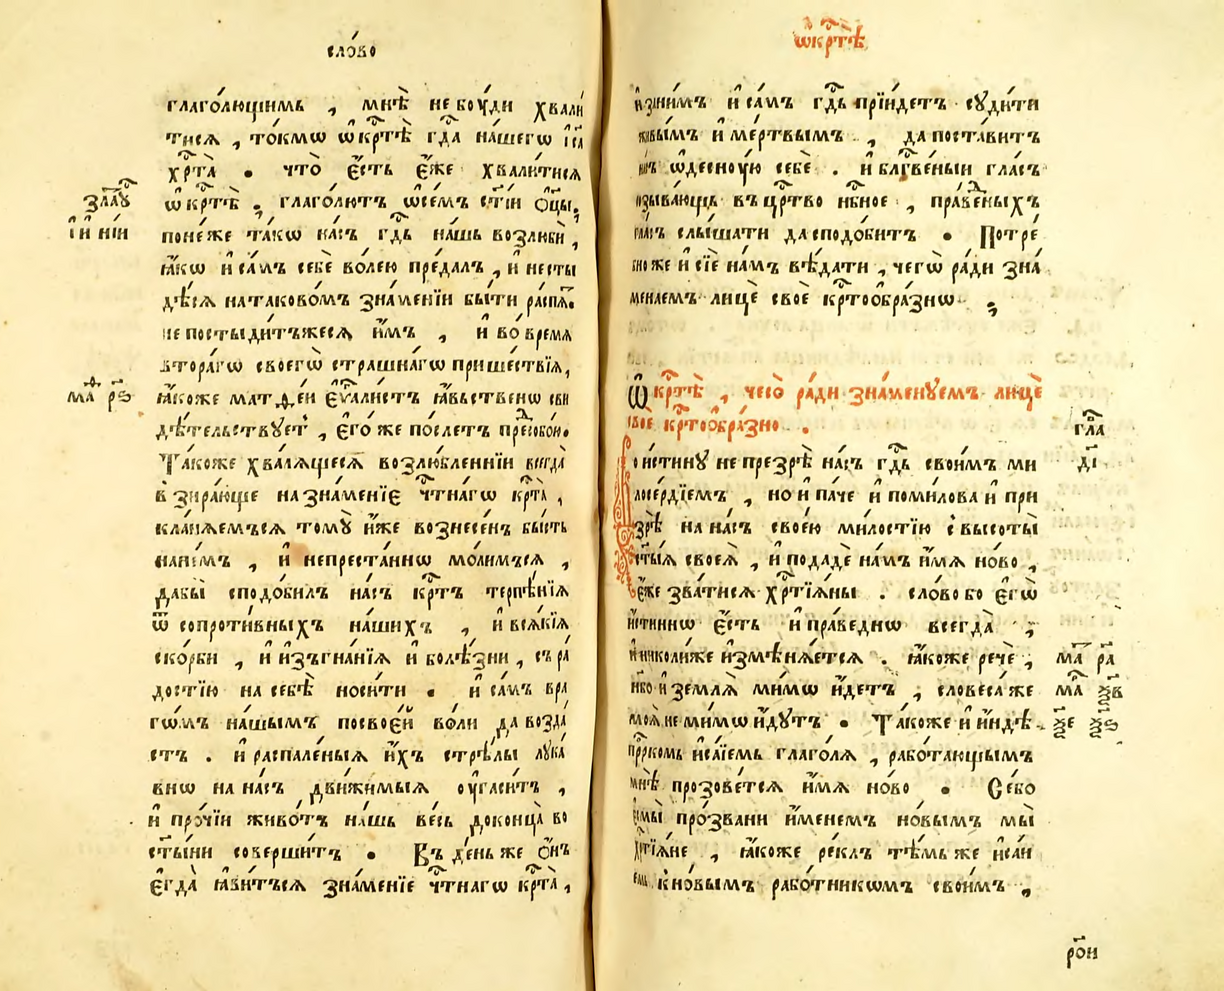 сло́во
глаго́лющимъ , мнѣ̀ не бꙋ́ди хвали
тисѧ , то́кмѡ ѡ҆ кр҇тѣ гд҇а на́шегѡ і҆с҃а
хр҇та̀ . что̀ є҆́сть є҆́же хвали́тисѧ
зла҇ꙋ
ѡ҆ кр҇тѣ̀ . глаго́лютъ ѡ҆ се́мъ ст҃і́и ѻ҆ц҃ы̀.
поне́же та́кѡ на́съ гд҇ь на́шъ возлюбѝ ,
ꙗ҆́кѡ и҆ са́мъ себѐ во́лею пре́далъ , и҆ не сты
дѣ́сѧ на таково́мъ зна́менїи бы́ти распѧ҇.
не постыди́тъжесѧ и҆́мъ , и҆ во́ времѧ
втора́гѡ своегѡ̀ стра́шнагѡ прише́ствїѧ,
ма҇ рѕ҃
ꙗ҆́коже матѳе́и є҆ѵ҇али́стъ ꙗ҆́вьственѡ сви
дѣ́тельствꙋетъ , є҆го́ же по́слетъ пре҇собо́ю.
Та́коже хва́лѧщесѧ возлю́бленнїи всегда̀
взира́юще на зна́менїе чт҇нагѡ кр҇та̀ ,
кла́нѧемъсѧ томꙋ̀ и҆́же вознесе́нъ бы́сть
на не́мъ , и҆ непреста́ннѡ мо́лимъсѧ ,
дабы̀ сподо́билъ на́съ кр҇тъ терпѣ́нїѧ
ѿ сопроти́вныхъ на́шихъ , и҆ всѧ́кїѧ
ско́рби , и҆ и҆зъгна́нїѧ и҆ болѣ́зни , съ ра́
достїю на себѣ̀ носи́ти . и҆ са́мъ вра
гѡ́мъ на́шымъ по свое́й во́ли да возда́
стъ . и҆ распале́ныѧ и҆́хъ стрѣ́лы лꙋка́
внѡ на на́съ дви́жимыѧ ᲂу҆гаси́тъ ,
и҆ про́чїи живо́тъ на́шъ ве́сь до конца̀ во
ст҃ы́ни соверши́тъ . Въ де́нь же ѻ҆́нъ
є҆гда̀ ꙗ҆ви́тъсѧ зна́менїе чт҇нагѡ кр҇та̀ ,
ѡ҆ кр҇тѣ
и҆ за ни́мъ и҆ са́мъ гд҇ь прїи́детъ сꙋди́ти
живы́мъ и҆ ме́ртвымъ , да поста́витъ
на́съ ѡ҆деснꙋ́ю себѐ . и҆ блг҇ве́ныи гла́съ
в цр҇тво нб҃ное , пра́ве҇ныхъ
гла́съ слы́шати да сподо́битъ . Потре́
бно же и҆ сїѐ на́мъ вѣ́дати , чегѡ̀ ра́ди зна́
менаемъ лицѐ своѐ кр҇тоѻбра́знѡ ,
Ѡ҆ кр҇тѣ̀ , чесо̀ ра́ди зна́менꙋемъ лицѐ
своѐ кр҇тоѻбра́зно .
гла҇
ді҃
Во и́стинꙋ не презрѣ̀ на́съ гд҇ь свои́мъ ми
лосе́рдїемъ , но и҆ па́че и҆ поми́лова и҆ при
зрѣ̀ на на́съ свое́ю ми́лостїю с высоты̀
ст҃ы́ѧ своеѧ̀ , и҆ подадѐ на́мъ и҆́мѧ но́во ,
є҆́же зва́тисѧ хр҇тїѧ́ны . сло́во бо є҆гѡ̀
и҆́стиннѡ є҆́сть и҆ пра́веднѡ всегда̀ ,
и҆ николи́же и҆змѣнѧ́етсѧ . ꙗ҆́коже речѐ ,
ма҇ ра҃
не́бо и҆ землѧ̀ ми́мѡ и҆́детъ , словеса́ же
моѧ̀ не ми́мѡ и҆дꙋ́тъ . Та́коже и҆ и҆ндѣ̀
прⷪ҇ркомъ и҆са́їемъ глаго́лѧ , рабо́тающымъ
мнѣ̀ прозове́тсѧ и҆́мѧ но́во . Се́бо
и҆ мы̀ про́звани и҆́менемъ но́вымъ мы̀
хр҇тїѧ́не , ꙗ҆́коже ре́клъ тѣ́мь же и҆са́и
емъ к но́вымъ рабо́тникѡмъ свои́мъ ,